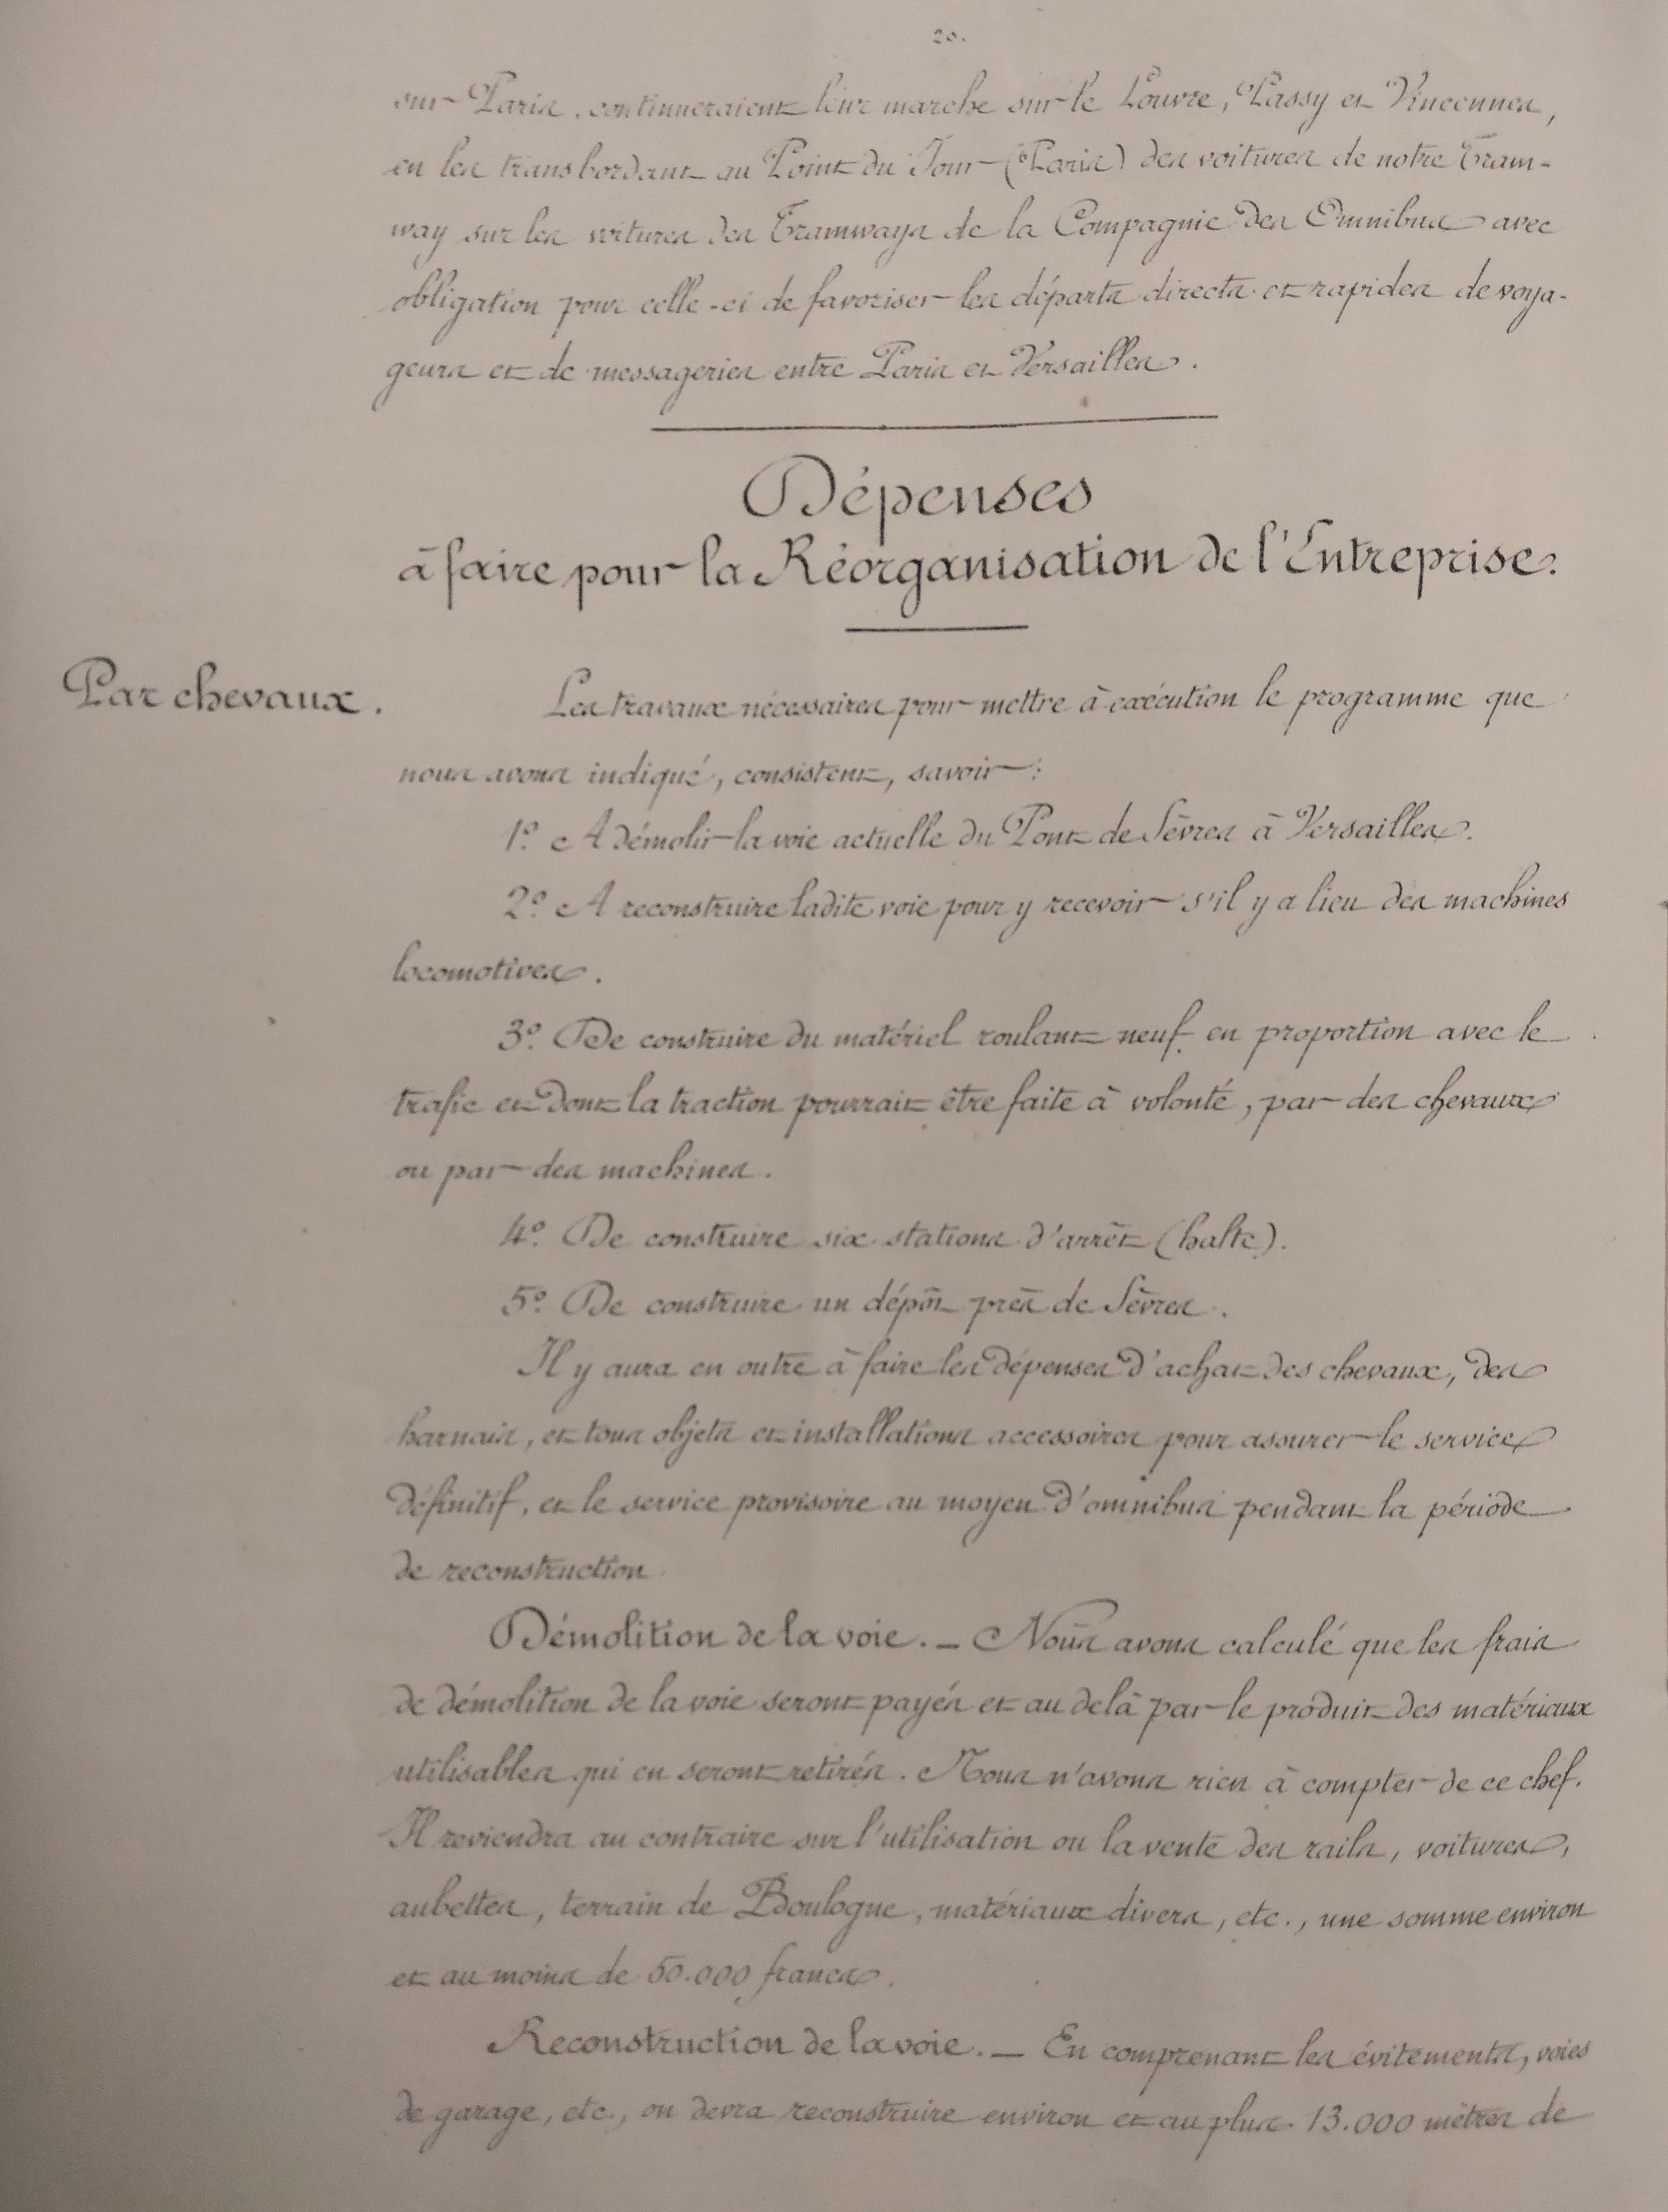 20.
sur Paris, continueraient leur marche sur le Louvre, Passy et Vincennes,
en les transbordant au Point du Jour (Paris) des voitures de notre Tram-
way sur les voitures des Tramways de la Compagnie des Omnibus avec
obligation pour celle-ci de favoriser les départs directs et rapides de voya-
geurs et de messageries entre Paris et Versailles.
Dépenses
à faire pour la Réorganisation de l'Entreprise.
Par chevaux.
Les travaux nécessaires pour mettre à exécution le programme que
nous avons indiqué, consistent, savoir :
1º. A démolir la voie actuelle du Pont de Sèvres à Versailles.
2º. A reconstruire ladite voie pour y recevoir s'il y a lieu des machines
locomotives.
3º. De construire du matériel roulant neuf en proportion avec le
trafic et dont la traction pourrait être faite à volonté, par des chevaux
ou par des machines.
4º. De construire six stations d'arrêt (halte).
5º. De construire un dépôt près de Sèvres.
Il y aura en outre à faire les dépenses d'achat des chevaux, des
harnais, et tous objets et installations accessoires pour assurer le service
définitif, et le service provisoire au moyen d'omnibus pendant la période
de reconstruction.
Démolition de la voie. — Nous avons calculé que les frais
de démolition de la voie seront payés et au delà par le produit des matériaux
utilisables qui en seront retirés. Nous n'avons rien à compter de ce chef.
Il reviendra au contraire sur l'utilisation ou la vente des rails, voitures,
aubettes, terrain de Boulogne, matériaux divers, etc., une somme environ
et au moins de 50.000 francs.
Reconstruction de la voie. — En comprenant les évitements, voies
de garage, etc., on devra reconstruire environ et au plus 13.000 mètres de